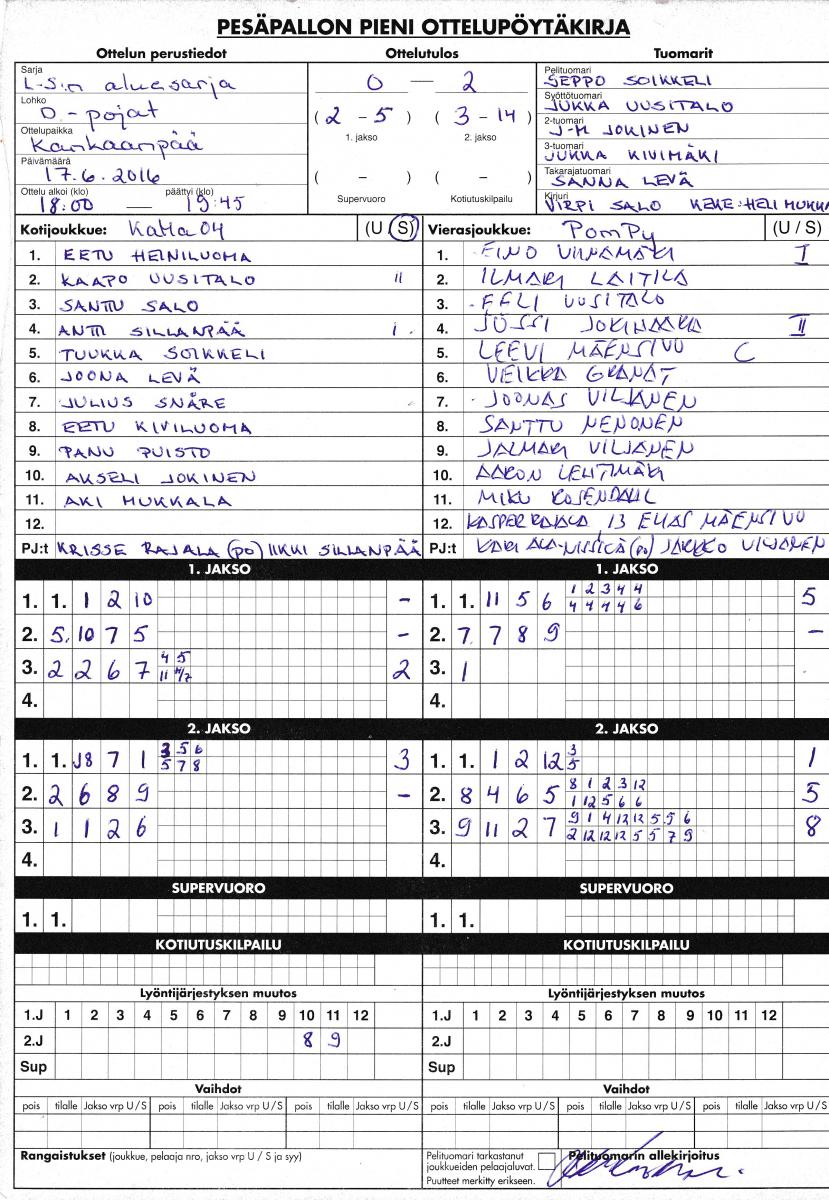 PESÄPALLON PIENI OTTELUPÖYTÄKIRJA
Ottelun perustiedot Ottelutulos Tuomarit
Sarja L-S:n aluesarja
Lohko D.-pojat
Ottelupaikka Kankaanpää
Päivämäärä 17.6.2016
Ottelu alkoi (klo) päättyi (klo)
18:00 — 19:45
0 — 2
( 2 - 5 ) ( 3 - 14 )
1. jakso 2. jakso
( – ) ( – )
Supervuoro Kotiutuskilpailu
Pelituomari SEPPO SOIKKELI
Syöttötuomari JUKKA UUSITALO
2-tuomari J-M JOKINEN
3-tuomari JUKKA KIVIMÄKI
Takarajatuomari SANNA LEVÄ
Kirjuri VIRPI SALO KEKE:HELI MUKKA
Kotijoukkue: KaMa 04 (U S)
1. EETU HEINILUOMA
2. KAAPO UUSITALO II
3. SANTTU SALO
4. ANTTI SILLANPÄÄ I.
5. TUUKKA SOIKKELI
6. JOONA LEVÄ
7. JULIUS SNÅRE
8. EETU KIVILUOMA
9. PANU PUISTO
10. AKSELI JOKINEN
11. AKI MUKKALA
12.
PJ:t KRISSE RAJALA (PO) IIKKUI SILLANPÄÄ
Vierasjoukkue: PomPy (U / S)
1. EINO VIINAMÄKI I
2. ILMARI LAITILA
3. EELI UUSITALO
4. JUSSI JOKINAARA II
5. LEEVI MÄENSIVU C
6. VEIKKA GRANAT
7. JOONAS VILJANEN
8. SANTTU NENONEN
9. JALMARI VILJANEN
10. AARON LEHTIMÄKI
11. MIKU ROSENDAHL
12. KASPER RAJALA, 13 ELIAS MÄENSIVU
PJ:t KARI ALA-NISSILÄ (PO) JARKKO VILJANEN
1. JAKSO
1. 1. 1 2 10 –
2. 5. 10 7 5 –
3. 2 2 6 7 4 5 2
4.
1. JAKSO
1. 1. 11 5 6 1 2 3 4 4 5
4 4 4 4 6
2. 7. 7 8 9 –
3. 1
4.
2. JAKSO
1. 1. J8 7 1 3 5 6 3
5 7 8
2. 2 6 8 9 –
3. 1 1 2 6
4.
2. JAKSO
1. 1. 1 2 12 3 1
5
2. 8 4 6 5 8 1 2 3 12 5
1 12 5 6 6
3. 9 11 2 7 9 1 4 12 12 5 5 6 8
2 12 12 12 5 5 7 9
4.
SUPERVUORO SUPERVUORO
1. 1. 1. 1.
KOTIUTUSKILPAILU KOTIUTUSKILPAILU
Lyöntijärjestyksen muutos Lyöntijärjestyksen muutos
1.J 1 2 3 4 5 6 7 8 9 10 11 12 1.J 1 2 3 4 5 6 7 8 9 10 11 12
2.J 8 9 2.J
Sup Sup
Vaihdot Vaihdot
pois tilalle Jakso vrp U/S pois tilalle Jakso vrp U/S pois tilalle Jakso vrp U/S pois tilalle Jakso vrp U/S
Rangaistukset (joukkue, pelaaja nro, jakso vrp U / S ja syy)
Pelituomari tarkastanut joukkueiden pelaajaluvat.
Puutteet merkitty erikseen.
Pelituomarin allekirjoitus